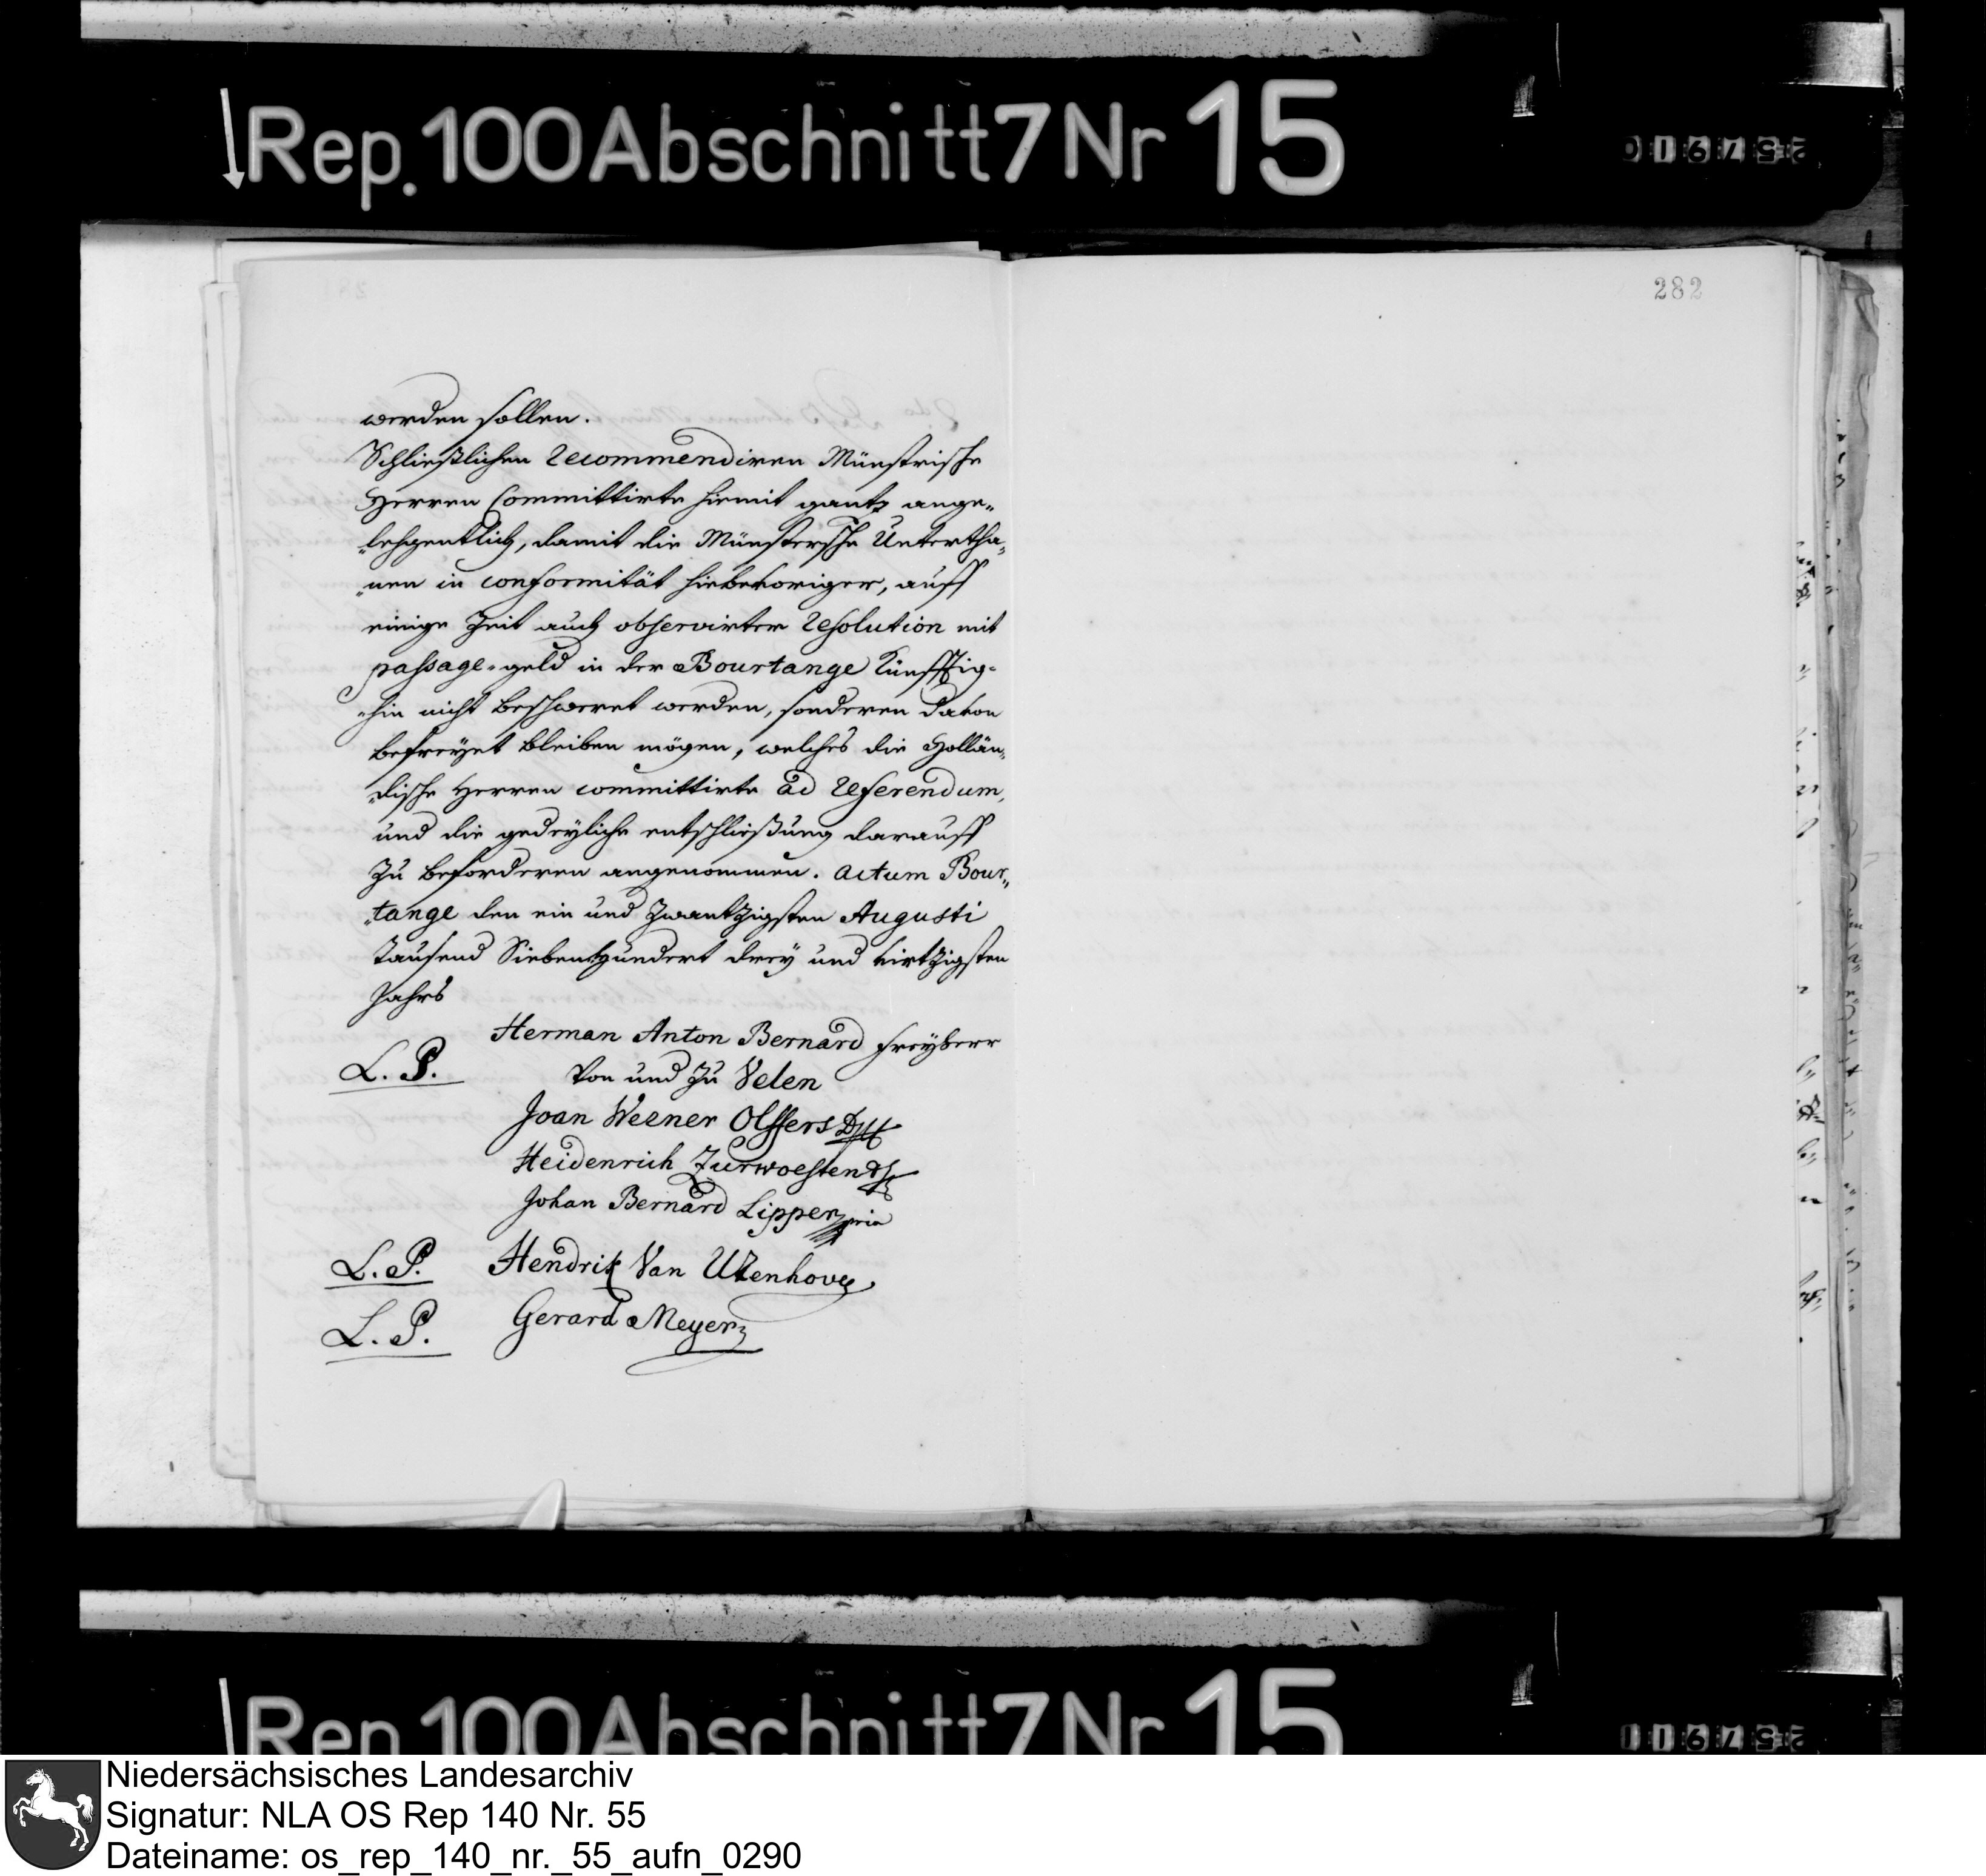 Rep. 100 Abschnitt 7 Nr 15
282
werden sollen.
Schließlichen Recommendiren Münstrische
Herren Committirte hiemit gantz ange„
„lehgentlich, damit die Münstersche Untertha„
„nen in conformität hiebevoriger, auff
einige Zeit auch observirter Resolution mit
passage-geld in der Bourtange künfftig-
„hin nicht beschweret werden, sonderen davon
befreÿet bleiben mögen, welches die Hollän„
„dische Herren committirte ad Referendum,
und die gedeyliche entschließung darauff
zu beforderen angenommen. Actum Bour„
„tange den ein und zwantzigsten Augusti
Tausend Siebenhundert dreÿ und virtzigsten
Jahrs
Herman Anton Bernard freÿherr
L. S. Von und zu Velen
Joan Werner Olffers
Heidenrich Zurwoesten
Johan Bernard Lipper
L. S. Hendrik Van Utenhove
L. S. Gerard Meyer
Rep. 100 Abschnitt 7 Nr 15
Niedersächsisches Landesarchiv
Signatur: NLA OS Rep 140 Nr. 55
Dateiname: os_rep_140_nr._55_aufn_0290